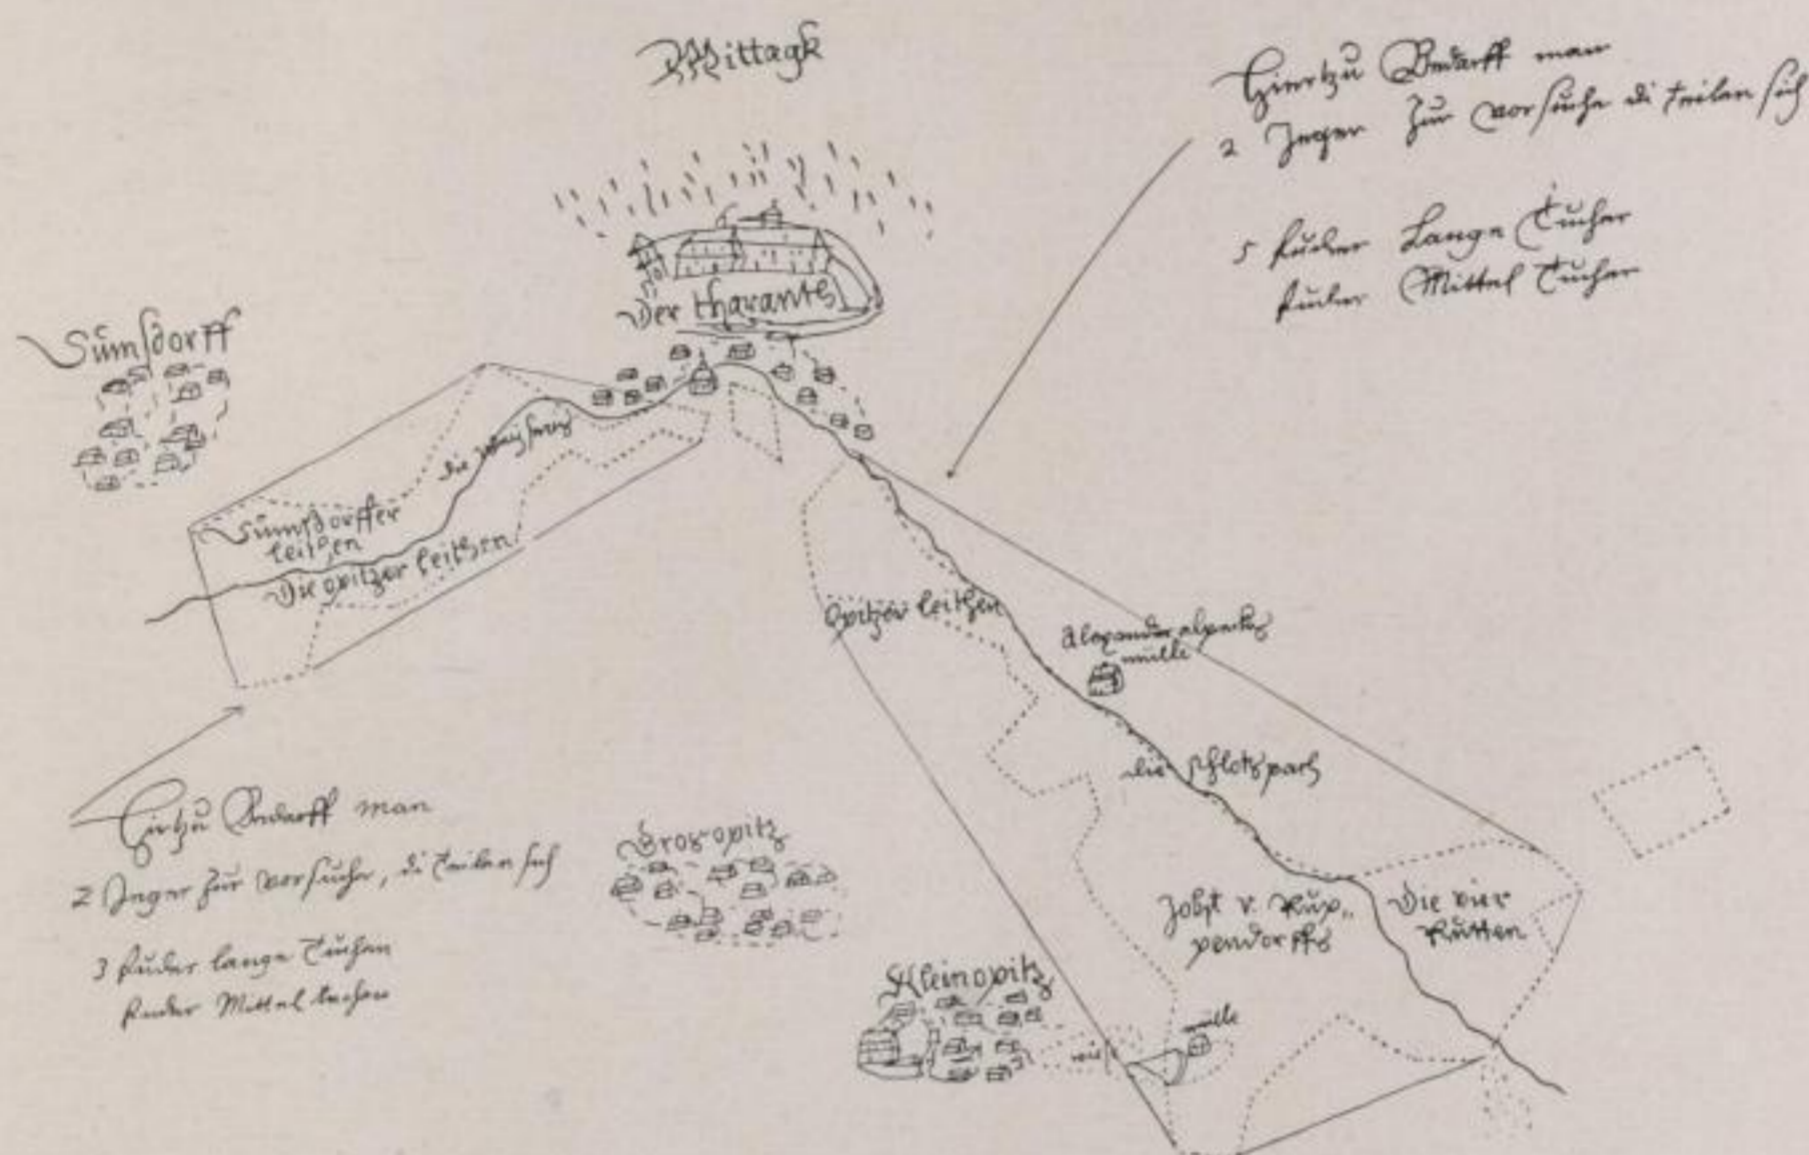 Mittagk
Hiertzu Bedarff man
2 Jeger zur vorsuche di teilen sich
5 fuder Lange Tucher
fuder Mittel Tucher
Der tharanth
Sümsdorff
die
Sümsdorffer
leithen
Die opitzer leithen
Opitzer leithen
Alexander
mülle
die schlotzpach
Hirtzu Bedarff man
2 Jeger zur vorsuche, di teilen sich
3 fuder lange Tucher
fuder Mittel tucher
Grosopitz
Jobst v. Rup„
pendorffs
Die vier
Rutten
Kleinopitz
mülle